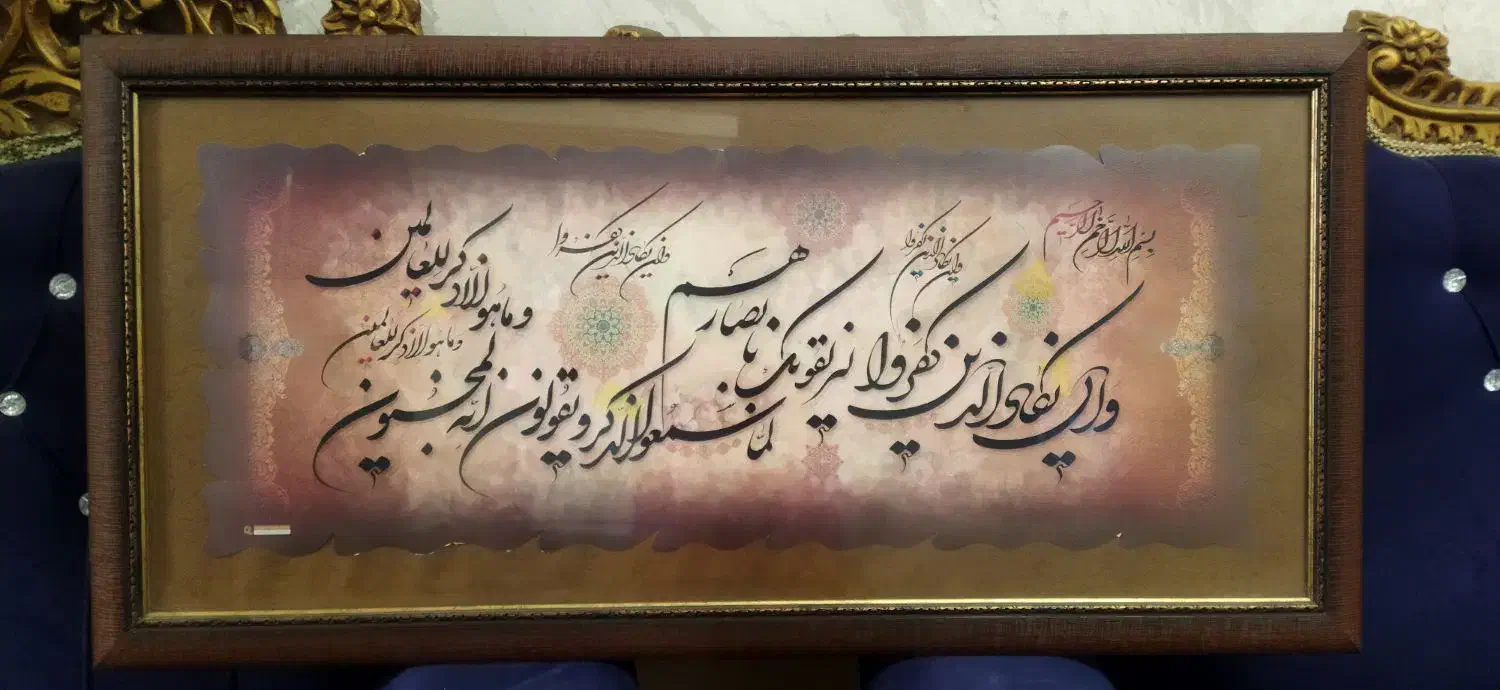 بسم الله الرحمن الرحیم
وان یکاد الذین کفروا
وان یکاد الذین کفروا لیزلقونک بابصارهم
وان یکاد الذین کفروا
لما سمعوا الذکر و یقولون انه لمجنون
و ما هو الا ذکر للعالمین
و ما هو الا ذکر للعالمین